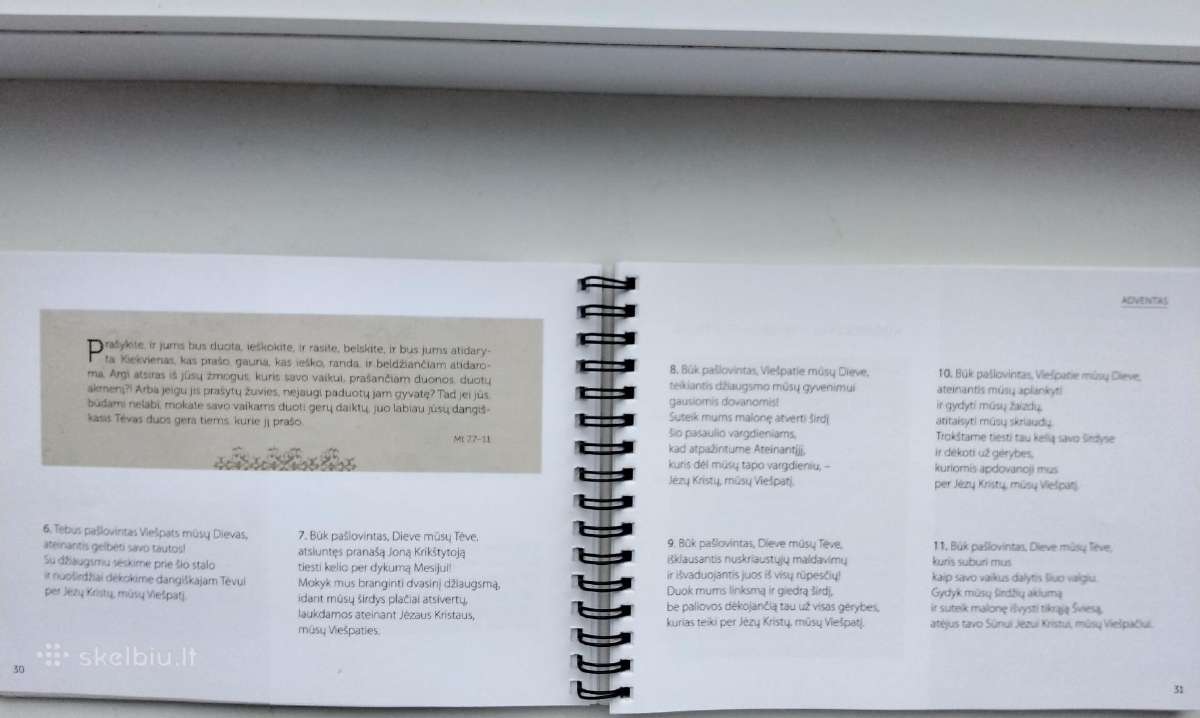 Prašykite, ir jums bus duota, ieškokite, ir rasite, belskite, ir bus jums atidary-
ta. Kiekvienas, kas prašo, gauna, kas ieško, randa, ir beldžiančiam atidaro-
ma. Argi atsiras iš jūsų žmogus, kuris savo vaikui, prašančiam duonos, duotų
akmenį?! Arba jeigu jis prašytų žuvies, nejaugi paduotų jam gyvatę? Tad jei jūs,
būdami nelabi, mokate savo vaikams duoti gerų daiktų, juo labiau jūsų dangiš-
kasis Tėvas duos gera tiems, kurie jį prašo.
Mt 7,7–11
6. Tebus pašlovintas Viešpats mūsų Dievas,
ateinantis gelbėti savo tautos!
Su džiaugsmu sėskime prie šio stalo
ir nuoširdžiai dėkokime dangiškajam Tėvui
per Jėzų Kristų, mūsų Viešpatį.
7. Būk pašlovintas, Dieve mūsų Tėve,
atsiuntęs pranašą Joną Krikštytoją
tiesti kelio per dykumą Mesijui!
Mokyk mus branginti dvasinį džiaugsmą,
idant mūsų širdys plačiai atsivertų,
laukdamos ateinant Jėzaus Kristaus,
mūsų Viešpaties.
30
skelbiu.lt
ADVENTAS
8. Būk pašlovintas, Viešpatie mūsų Dieve,
teikiantis džiaugsmo mūsų gyvenimui
gausiomis dovanomis!
Suteik mums malonę atverti širdį
šio pasaulio vargdieniams,
kad atpažintume Ateinantįjį,
kuris dėl mūsų tapo vargdieniu, –
Jėzų Kristų, mūsų Viešpatį.
9. Būk pašlovintas, Dieve mūsų Tėve,
išklausantis nuskriaustųjų maldavimų
ir išvaduojantis juos iš visų rūpesčių!
Duok mums linksmą ir giedrą širdį,
be paliovos dėkojančią tau už visas gėrybes,
kurias teiki per Jėzų Kristų, mūsų Viešpatį.
10. Būk pašlovintas, Viešpatie mūsų Dieve,
ateinantis mūsų aplankyti
ir gydyti mūsų žaizdų,
atitaisyti mūsų skriaudų.
Trokštame tiesti tau kelią savo širdyse
ir dėkoti už gėrybes,
kuriomis apdovanoji mus
per Jėzų Kristų, mūsų Viešpatį.
11. Būk pašlovintas, Dieve mūsų Tėve,
kuris suburi mus
kaip savo vaikus dalytis šiuo valgiu.
Gydyk mūsų širdžių aklumą
ir suteik malonę išvysti tikrąją Šviesą,
atėjus tavo Sūnui Jėzui Kristui, mūsų Viešpačiui.
31